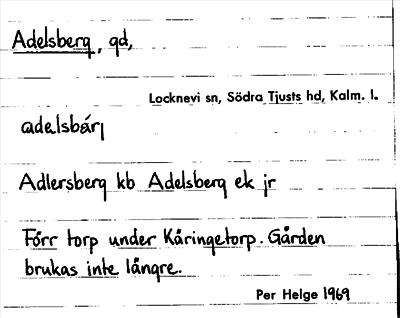 Adelsberg, gd,
Locknevi sn, Södra Tjusts hd, Kalm. l.
adelsbárj
Adlersberg kb Adelsberg ek jr
Förr torp under Käringetorp. Gården
brukas inte längre.
Per Helge 1969